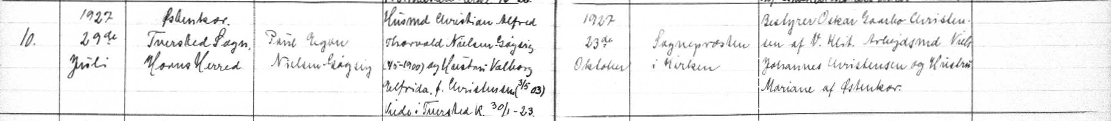 10.
1927
29de
Juli
Østenkær.
Tversted Sogn,
Horns Herred
Poul Egon
Nielsen
Husmd Christian Alfred
Thorvald Nielsen
og Hustru Valborg
Elfrida, f. Christensen (3/5 03)
Viede i Tversted K. 30/1 - 23.
1927
23de
Oktober
Sognepræsten
i Kirken
Bestyrer Oskar Christen-
sen af V. Klit. Arbejdsmd Niels
Johannes Christensen og Hustru
Mariane af Østenkær.